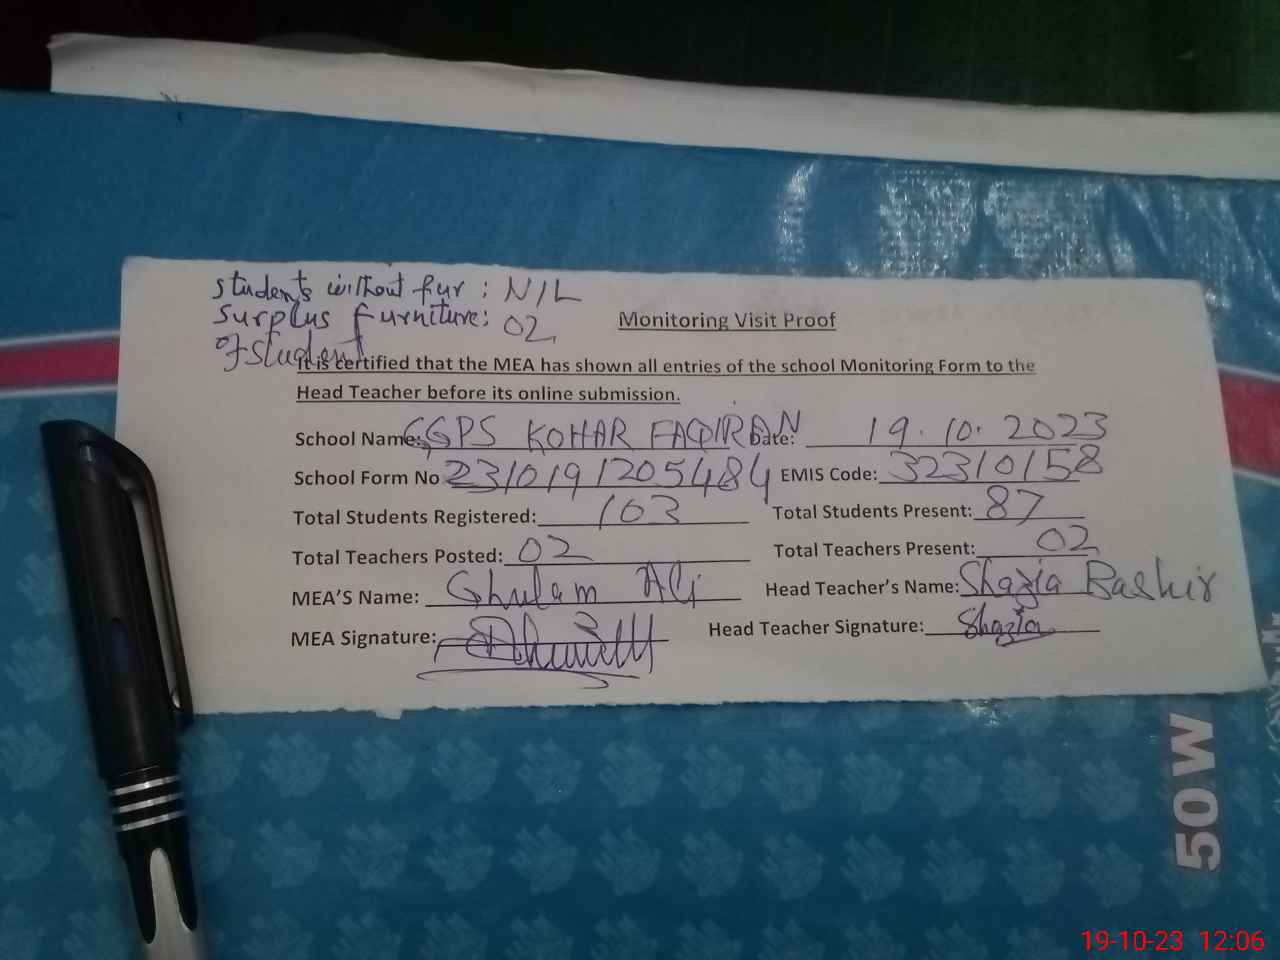 students without fur : NIL
surplus furniture: 02
of student
Monitoring Visit Proof
It is certified that the MEA has shown all entries of the school Monitoring Form to the
Head Teacher before its online submission.
School Name: GGPS KOHAR FAQIRAN Date: 19.10.2023
School Form No 2310191205484 EMIS Code: 32310158
Total Students Registered: 103 Total Students Present: 87
Total Teachers Posted: 02 Total Teachers Present: 02
MEA'S Name: Ghulam Ali Head Teacher's Name: Shazia Bashir
MEA Signature: Head Teacher Signature: Shazia
50W
19-10-23 12:06